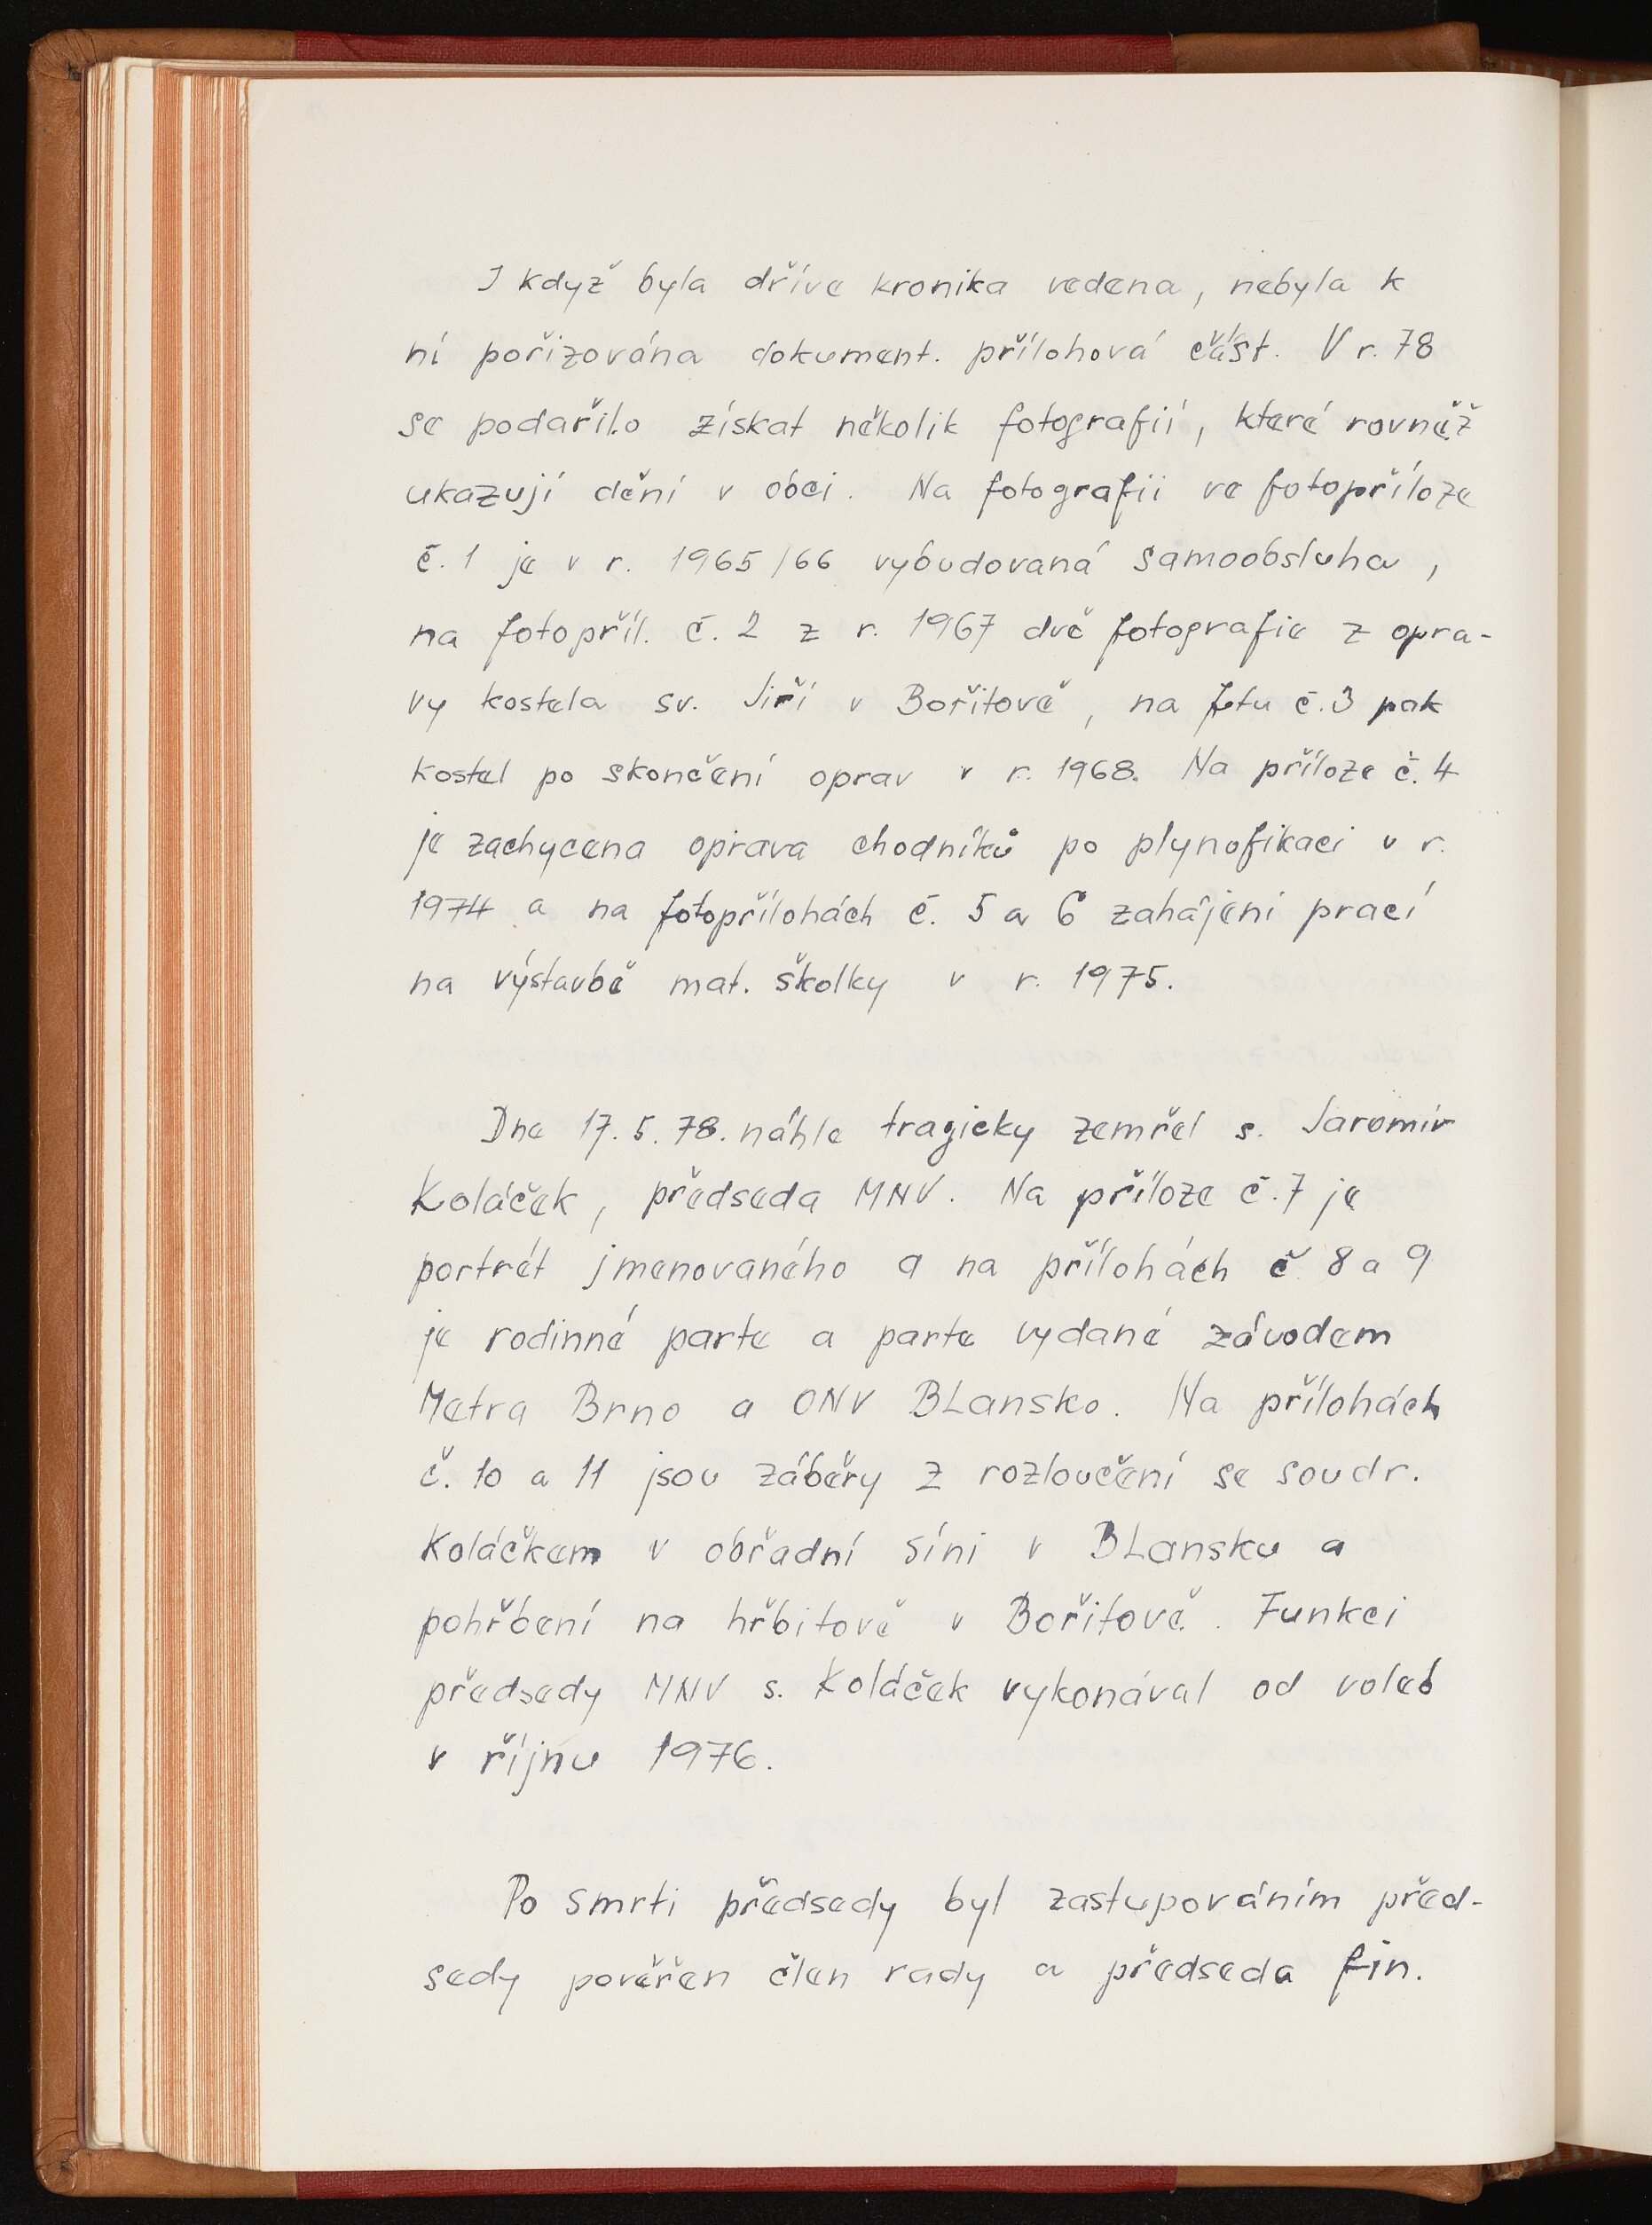 I když byla dříve kronika vedena, nebyla k
ní pořizována dokument. přílohová část. V r. 78
se podařilo získat několik fotografií, které rovněž
ukazují dění v obci. Na fotografii ve fotopříloze
č. 1 je v r. 1965/66 vybudovaná samoobsluha,
na fotopříl. č. 2 z r. 1967 dvě fotografie z opra-
vy kostela sv. Jiří v Bořitově, na fotu č. 3 pak
kostel po skončení oprav v r. 1968. Na příloze č. 4
je zachycena oprava chodníků po plynofikaci v r.
1974 a na fotopřílohách č. 5 a 6 zahájení prací
na výstavbě mat. školky v r. 1975.
Dne 17. 5. 78. náhle tragicky zemřel s. Jaromír
Koláček, předseda MNV. Na příloze č. 7 je
portrét jmenovaného a na přílohách č 8 a 9
je rodinné parte a parte vydané závodem
Metra Brno a ONV Blansko. Na přílohách
č. 10 a 11 jsou záběry z rozloučení se soudr.
Koláčkem v obřadní síni v Blansku a
pohřbení na hřbitově v Bořitově. Funkci
předsedy MNV s. Koláček vykonával od voleb
v říjnu 1976.
Po smrti předsedy byl zastupováním před-
sedy pověřen člen rady a předseda fin.